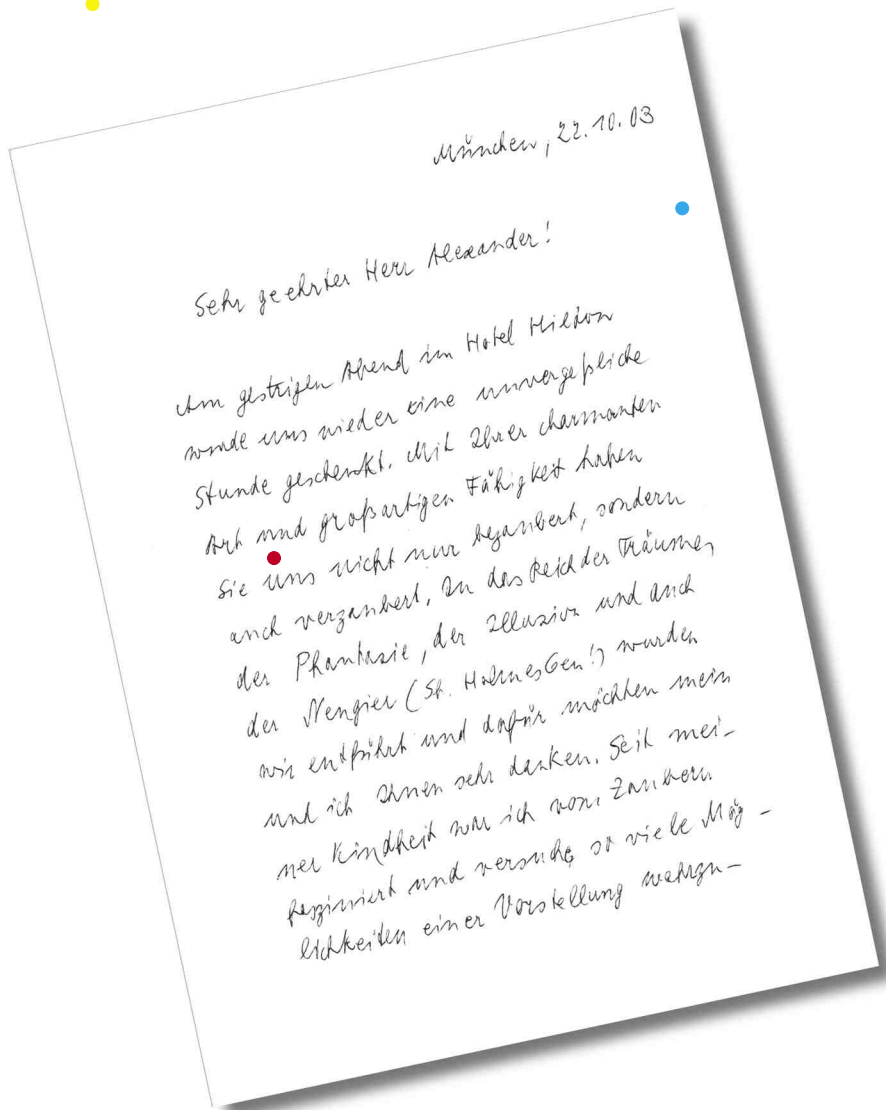 München, 22.10.03
Sehr geehrter Herr Alexander!
Am gestrigen Abend im Hotel Hilton
wurde uns wieder eine unvergeßliche
Stunde geschenkt. Mit Ihrer charmanten
Art und großartigen Fähigkeit haben
Sie uns nicht nur bezaubert, sondern
auch verzaubert. In das Reich der Träume,
der Phantasie, der Illusion und auch
der Neugier (Sh. Holmes Gen!) wurden
wir entführt und dafür möchten mein
und ich Ihnen sehr danken. Seit mei-
ner Kindheit war ich vom Zaubern
fasziniert und versuche so viele Mög-
lichkeiten einer Vorstellung wahrzu-